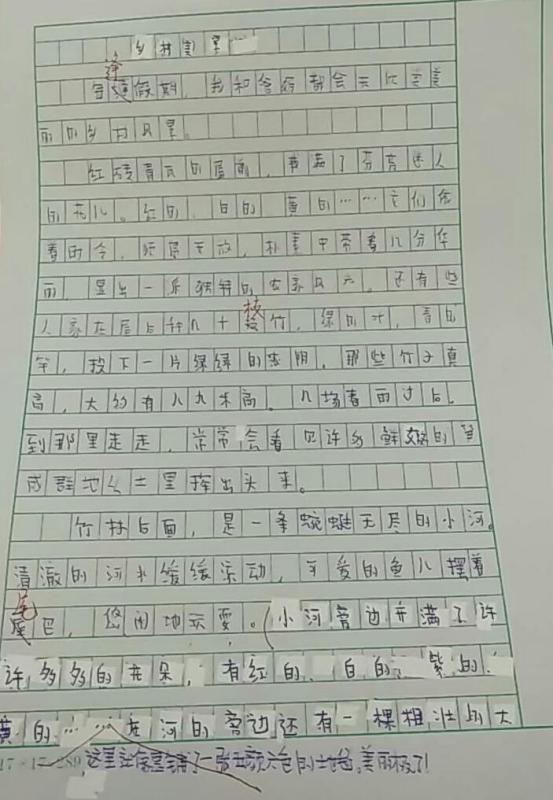 乡村美景
逢
每逢假期，我和爸爸都会去欣赏美
丽的乡村风景。
红砖青瓦的屋前，种满了芬芳迷人
的花儿。红的、白的、黄的……它们依
着时令，顺序开放，朴素中带着几分华
丽，显出一派独特的农家风光。还有些
人家在屋后种几十枝竹，绿的叶，青的
竿，投下一片绿绿的浓阴。那些竹子真
高，大约有八九米高。几场春雨过后，
到那里走走，常常会看见许多鲜嫩的笋
成群地从土里探出头来。
竹林后面，是一条蜿蜒无尽的小河。
清澈的河水缓缓流动，可爱的鱼儿摆着
尾巴，悠闲地玩耍。小河旁边开满了许
许多多的花朵，有红的、白的、紫的、
黄的……在河的旁边还有一棵粗壮的大
这里 美丽极了！